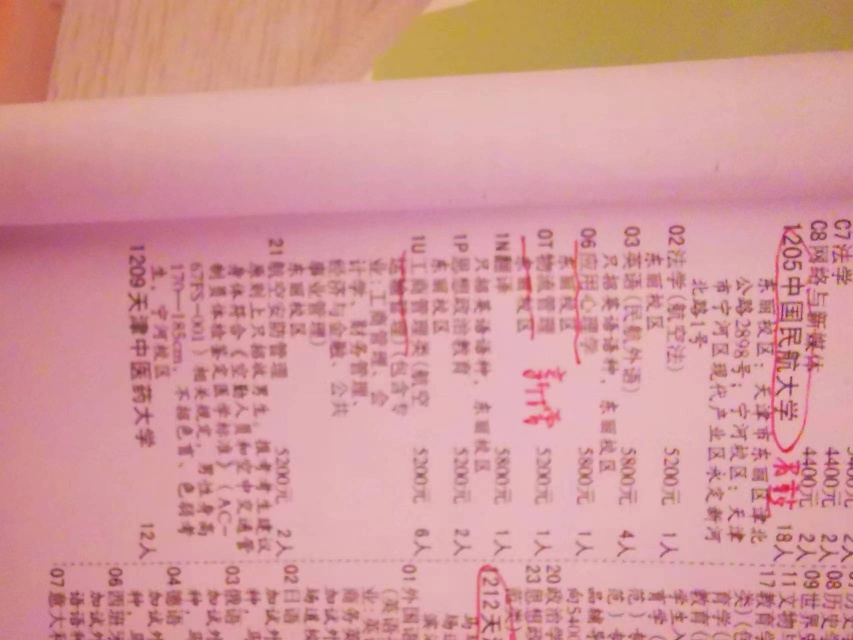 C7法学
C8网络与新媒体 4400元 2人
1205中国民航大学 18人
东丽校区：天津市东丽区津北
公路2898号；宁河校区：天津
市宁河区现代产业区永定新河
北路1号
02 法学(航空法) 5200元 1人
东丽校区
03 英语(民航外语) 5800元 4人
只招英语语种，东丽校区
06 应用心理学 5800元 1人
东丽校区
0T 物流管理 5200元 1人
校区
1N 翻译 5800元 1人
只招英语语种，东丽校区
1P 思想政治教育 5200元 2人
东丽校区
1U 工商管理类(航空 5200元 6人
包含专
业:工商管理、会
计学、财务管理、
经济与金融、公共
事业管理)
东丽校区
21 航空安防管理 5200元 2人
原则上只招收男生，报考考生建议
身体符合《空勤人员和空中交通管
制员体检鉴定医学标准》(AC-
67FS-001)相关规定，男性身高
170—185cm，不招色盲、色弱考
生，宁河校区
1209天津中医药大学 12人
08 历史
09 世界
11 文物
17 教育
20 政治学
23 思想政
212天
01 外国语
02 日语
加试
03 俄语
加试
04 德语
加试
06 西班
加试
07 意大利